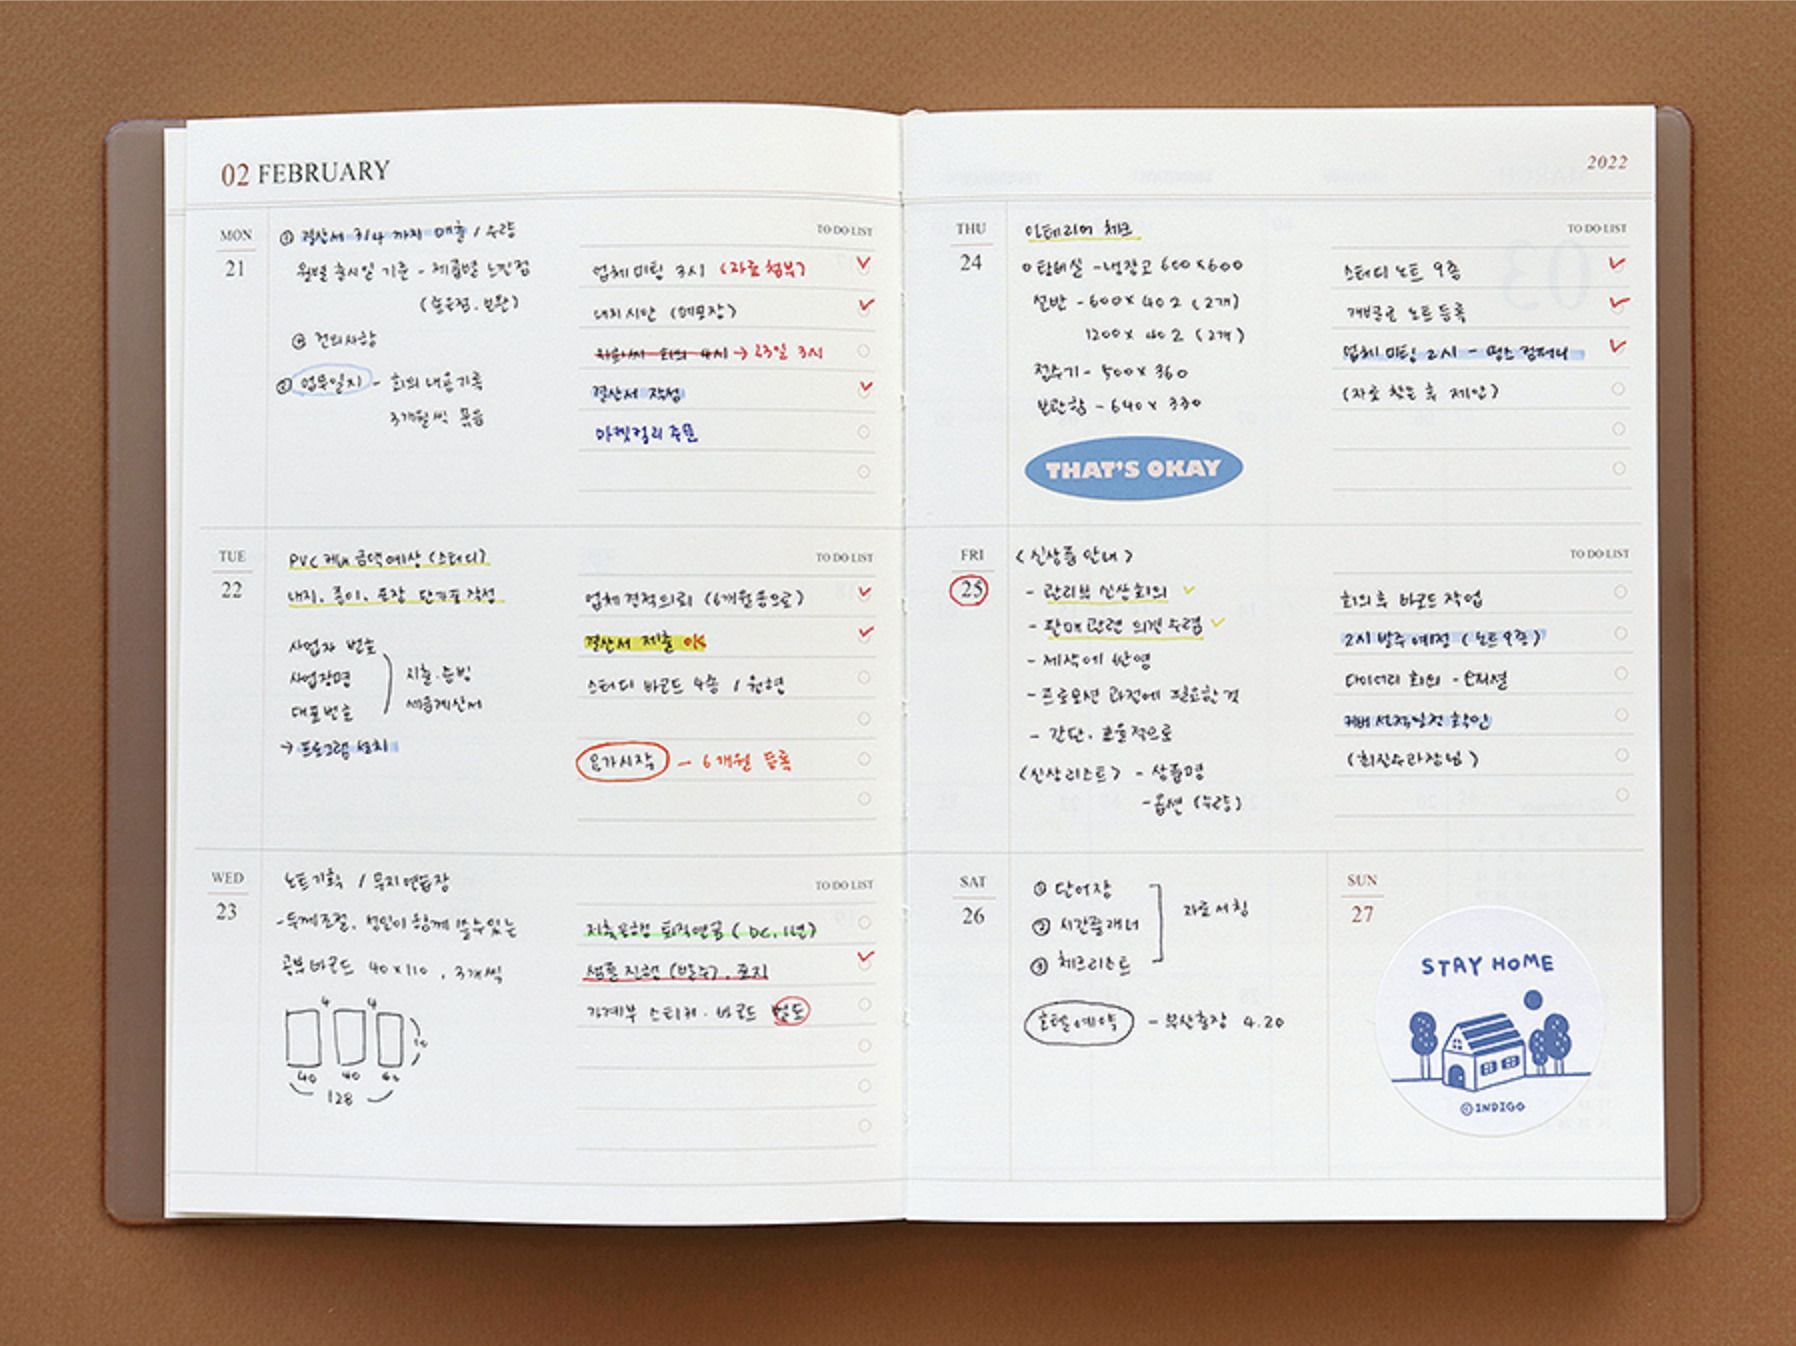 02 FEBRUARY
MON
21
① 결산서 3/4 까지 매출 / 수량
월별 출시일 기준 - 제품별 느낀점
(좋은점. 보완)
④ 건의사항
② 업무일지 - 회의 내용기록
3개월씩 묶음
TO DO LIST
업체미팅 3시 (자료첨부)
내지시안 (메모장)
회의 4시 → 23일 3시
결산서 작성
마켓컬리 주문
TUE
22
PVC 커버 금액예상 (스터디)
내지. 종이. 포장 단가표 작성
사업자 번호
사업장명
대표번호
지출.증빙
세금계산서
→ 프로그램 설치
TO DO LIST
업체견적의뢰 (6개월용으로)
결산서 제출 OK
스터디 바코드 4종 / 원형
요가시작 - 6개월 등록
WED
23
노트기획 / 무지연습장
- 두께조절. 성인이 함께 쓸수있는
공부 바코드 40x110 , 3개씩
4 4
40 40 40
128
TO DO LIST
저축은행 퇴직연금 ( DC. 1년)
샘플 진행 (발수) . 표지
가계부 스티커. 바코드 별도
2022
THU
24
인테리어 체크
o 탕비실 - 냉장고 600x600
선반 - 600x 402 (2개)
1200x 402 (2개)
정수기 - 500x360
보관함 - 640x 330
THAT'S OKAY
TO DO LIST
스터디 노트 9종
개별로 노트등록
업체 미팅 2시 - 컴퍼니
(자료 찾은 후 제안)
FRI
25
<신상품 안내>
- 관리부 신상회의
- 판매관련 의견 수렴
- 제작에 반영
- 프로모션 과정에 필요한 것
- 간단. 효율적으로
<신상리스트> - 상품명
- 옵션 (수량)
TO DO LIST
회의 후 바코드 작업
2시 발주 예정 (노트9종)
다이어리 회의 -
커버 확인
(최진수과장님)
SAT
26
① 단어장
② 시간플래너
③ 체크리스트
자료 서칭
호텔예약 - 부산출장 4.20
SUN
27
STAY HOME
©INDIGO